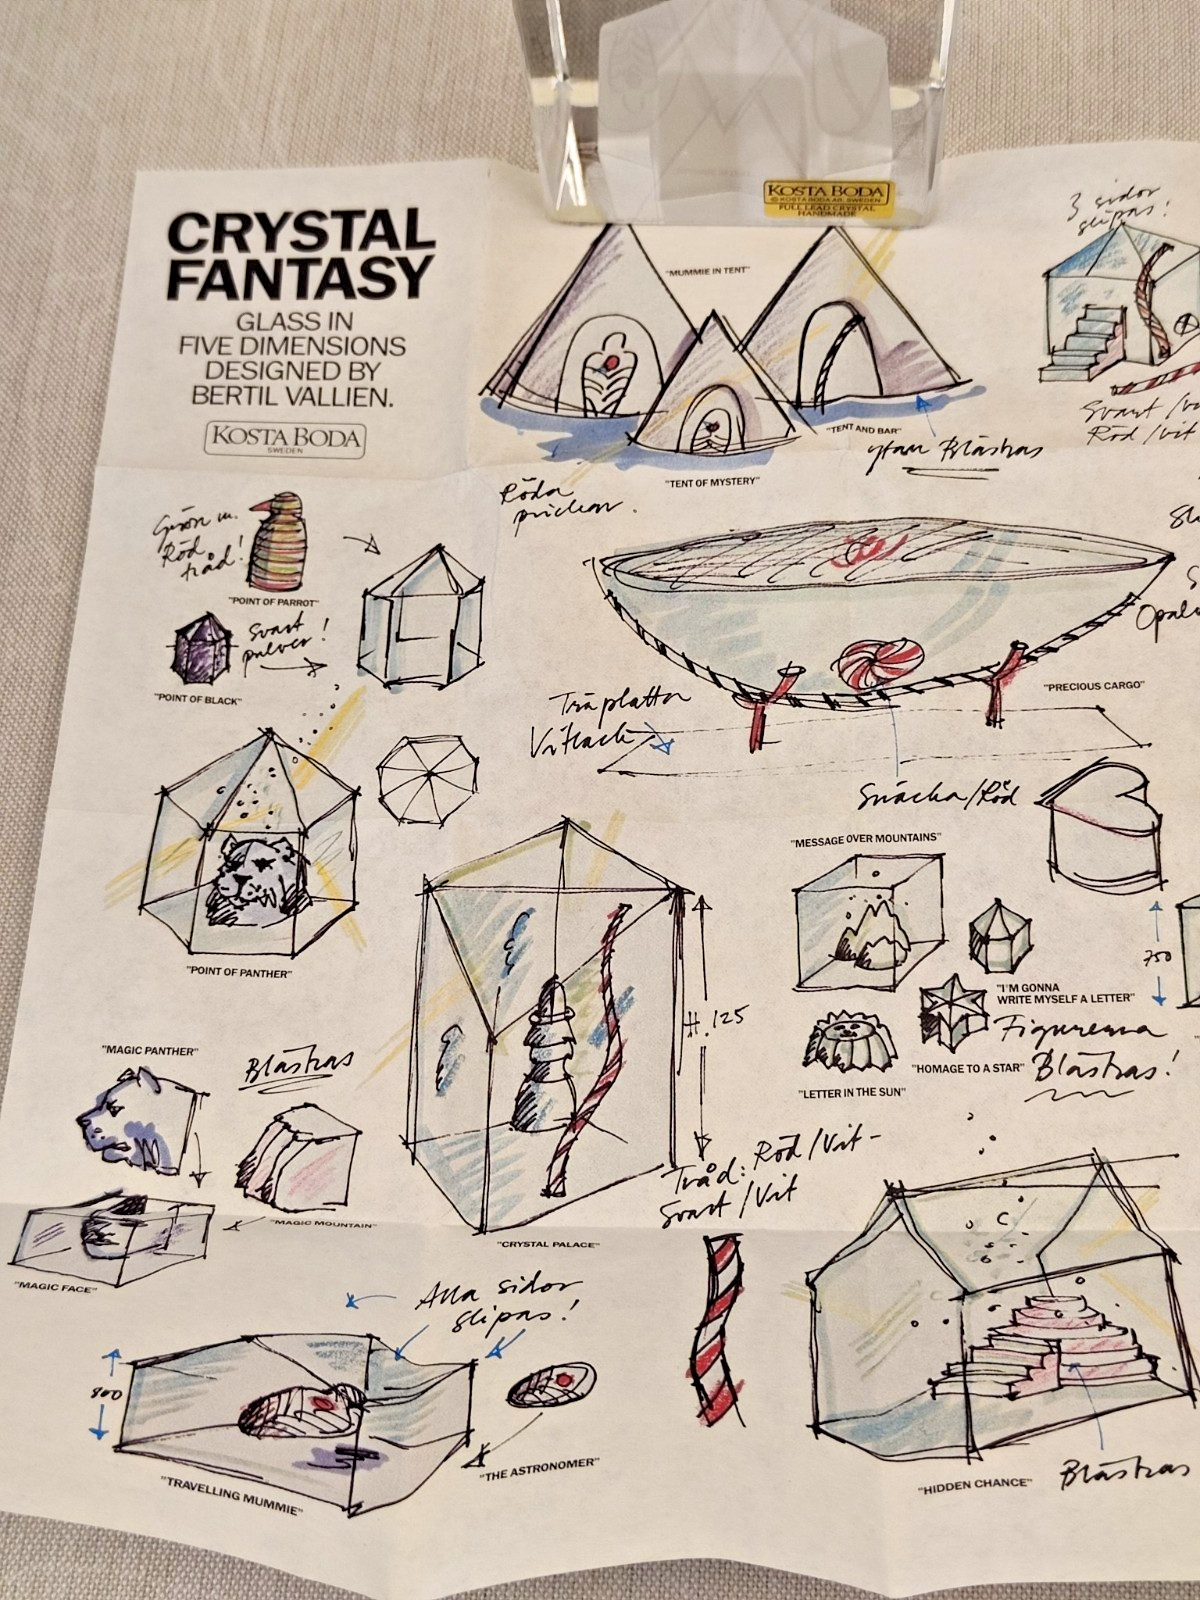 KOSTA BODA
© KOSTA BODA AB, SWEDEN
FULL LEAD CRYSTAL
HANDMADE
CRYSTAL
FANTASY
GLASS IN
FIVE DIMENSIONS
DESIGNED BY
BERTIL VALLIEN.
KOSTA BODA
SWEDEN
"MUMMIE IN TENT"
3 sidor
slipas!
"TENT AND BAR"
ytan Blästras
"TENT OF MYSTERY"
Svart /vi
Röd /vit
Röda
prickar.
Röd
tråd!
"POINT OF PARROT"
Svart
pulver!
"POINT OF BLACK"
"PRECIOUS CARGO"
Träplatta
Vitlack
Snäcka/Röd
"POINT OF PANTHER"
"MESSAGE OVER MOUNTAINS"
750
"I'M GONNA
WRITE MYSELF A LETTER"
H. 125
Figurerna
Blästras!
"HOMAGE TO A STAR"
"LETTER IN THE SUN"
"MAGIC PANTHER"
Blästras
"MAGIC MOUNTAIN"
"MAGIC FACE"
"CRYSTAL PALACE"
Tråd: Röd /Vit -
Svart /Vit
Alla sidor
slipas!
800
"TRAVELLING MUMMIE"
"THE ASTRONOMER"
"HIDDEN CHANCE"
Blästras